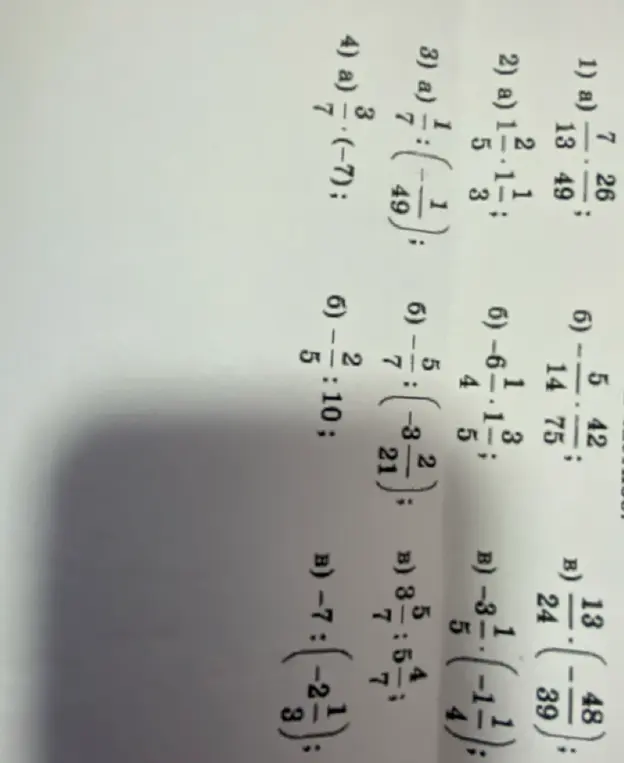 1) а) 7/13 · 26/49; б) -5/14 · 42/75; в) 13/24 · (-48/39);
2) а) 1 2/5 · 1 1/3; б) -6 1/4 · 1 3/5; в) -3 1/5 · (-1 1/4);
3) а) 1/7 : (-1/49); б) -5/7 : (-3 2/21); в) 3 5/7 : 5 4/7;
4) а) 3/7 · (-7); б) -2/5 : 10; в) -7 : (-2 1/3);